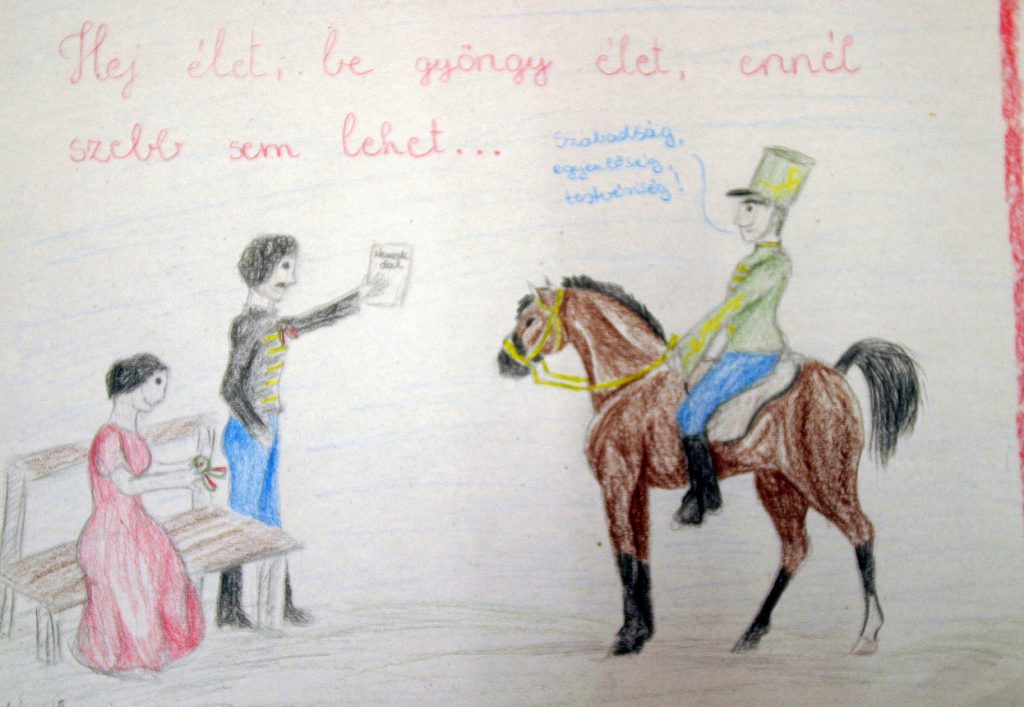 Hej élet, be gyöngy élet, ennél
szebb sem lehet...
Szabadság,
egyenlőség,
testvériség!
Nemzeti
dal